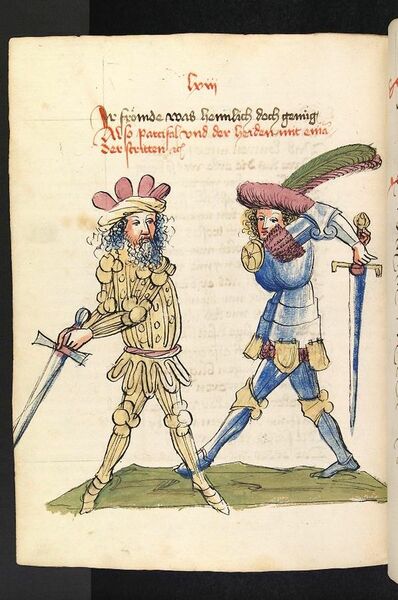 lxvii
Ir frömde was heinlich doch genůg
Also partifal vnd der heiden mit eina
der stritten